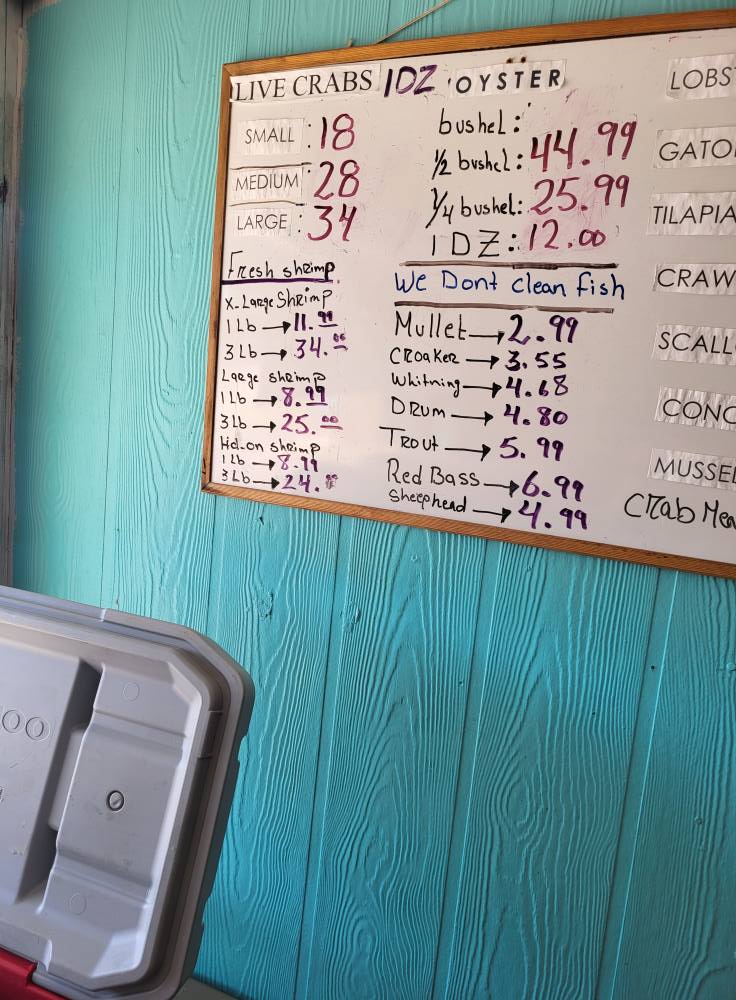 LIVE CRABS 1DZ
SMALL : 18
MEDIUM : 28
LARGE : 34
Fresh shrimp
X-Large Shrimp
1 Lb → 11.99
3 Lb → 34.00
Large shrimp
1 Lb → 8.99
3 Lb → 25.00
Hd-on shrimp
1 Lb → 8.99
3 Lb → 24.
OYSTER
bushel:
1/2 bushel: 44.99
1/4 bushel: 25.99
1 DZ: 12.00
We Dont clean fish
Mullet → 2.99
Croaker → 3.55
Whitning → 4.68
Drum → 4.80
Trout → 5.99
Red Bass → 6.99
Sheephead → 4.99
LOBST
GATO
TILAPIA
CRAW
SCALL
CONC
MUSSEL
Crab Mea